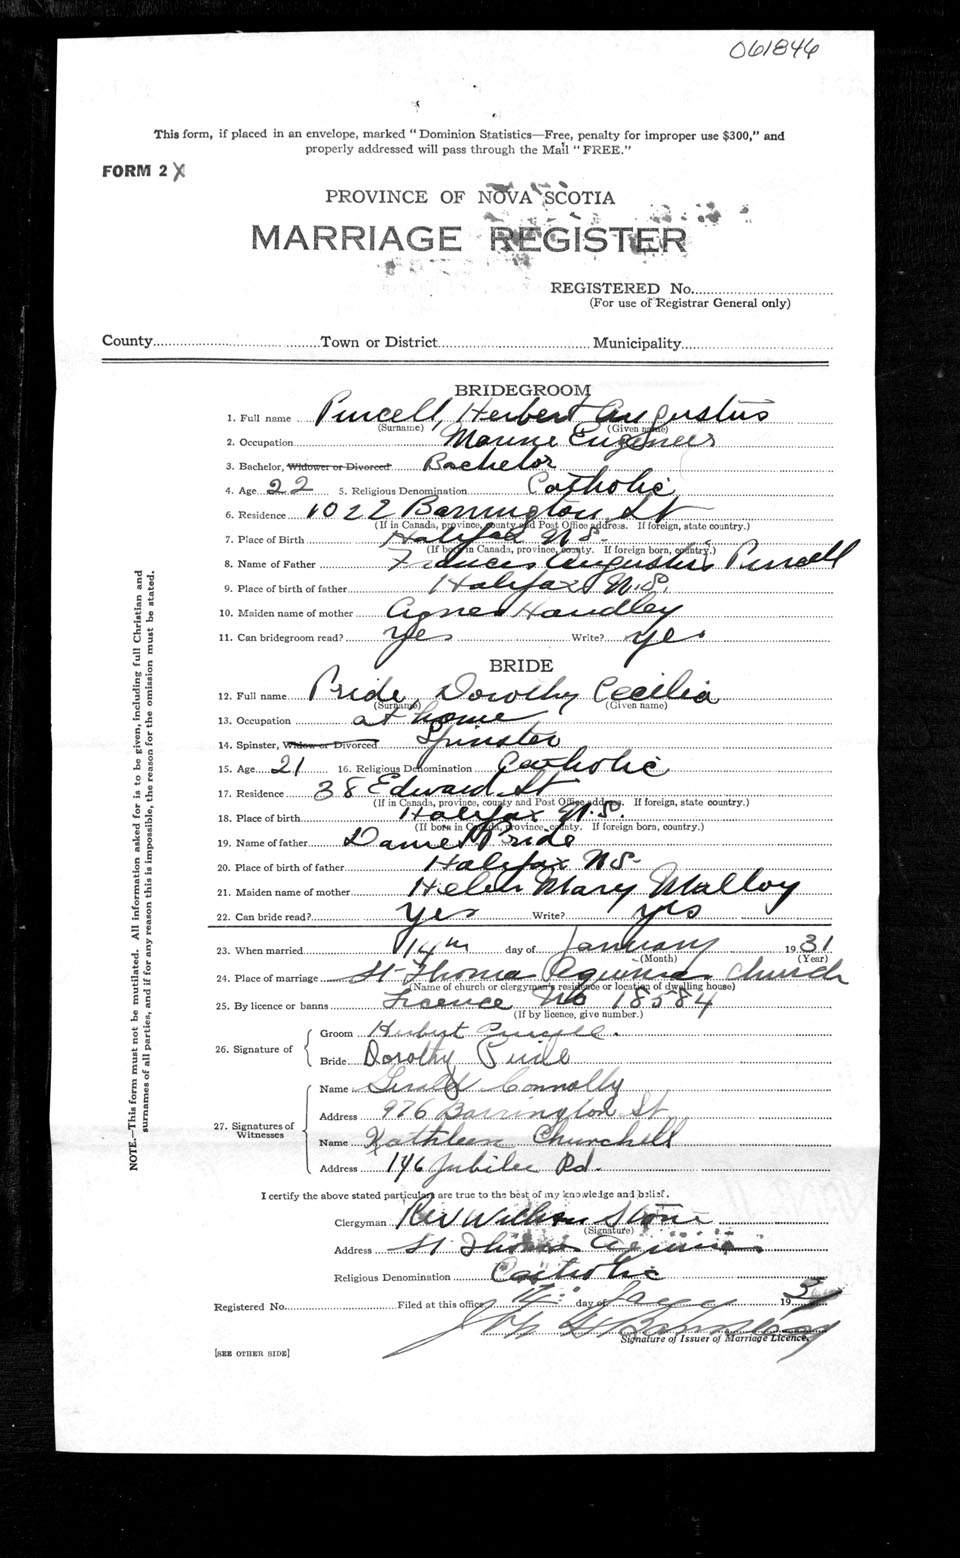 061846
This form, if placed in an envelope, marked "Dominion Statistics—Free, penalty for improper use $300," and
properly addressed will pass through the Mail "FREE."
FORM 2 X
PROVINCE OF NOVA SCOTIA
MARRIAGE REGISTER
REGISTERED No.
(For use of Registrar General only)
County Town or District Municipality
BRIDEGROOM
1. Full name Purcell, Herbert Augustus
(Surname) (Given name)
2. Occupation Marine Engineer
3. Bachelor, Widower or Divorced Bachelor
4. Age 22 5. Religious Denomination Catholic
6. Residence 1022 Barrington St
(If in Canada, province, county and Post Office address. If foreign, state country.)
7. Place of Birth Halifax N.S.
(If born in Canada, province, county. If foreign born, country.)
8. Name of Father Francis Augustus Purcell
9. Place of birth of father Halifax N.S.
10. Maiden name of mother Agnes Handley
11. Can bridegroom read? yes Write? yes
BRIDE
12. Full name Pride, Dorothy Cecilia
(Surname) (Given name)
13. Occupation at home
14. Spinster, Widow or Divorced Spinster
15. Age 21 16. Religious Denomination Catholic
17. Residence 38 Edward St
(If in Canada, province, county and Post Office address. If foreign, state country.)
18. Place of birth Halifax N.S.
(If born in Canada, province, county. If foreign born, country.)
19. Name of father Daniel Pride
20. Place of birth of father Halifax N.S.
21. Maiden name of mother Helen Mary Malloy
22. Can bride read? yes Write? yes
23. When married 14th day of January 1931
(Month) (Year)
24. Place of marriage St Thomas Aquinas Church
(Name of church or clergyman's residence or location of dwelling house)
25. By licence or banns Licence No 18584
(If by licence, give number.)
26. Signature of
Groom Herbert Purcell.
Bride Dorothy Pride
27. Signatures of Witnesses
Name Gerald Connolly
Address 976 Barrington St
Name Kathleen Churchill
Address 146 Jubilee Rd.
I certify the above stated particulars are true to the best of my knowledge and belief.
Clergyman Rev William Stone
(Signature)
Address St Thomas Aquinas
Religious Denomination Catholic
Registered No. Filed at this office day of 19
Signature of Issuer of Marriage Licence.
[SEE OTHER SIDE]
NOTE.—This form must not be mutilated. All information asked for is to be given, including full Christian and
surnames of all parties, and if for any reason this is impossible, the reason for the omission must be stated.